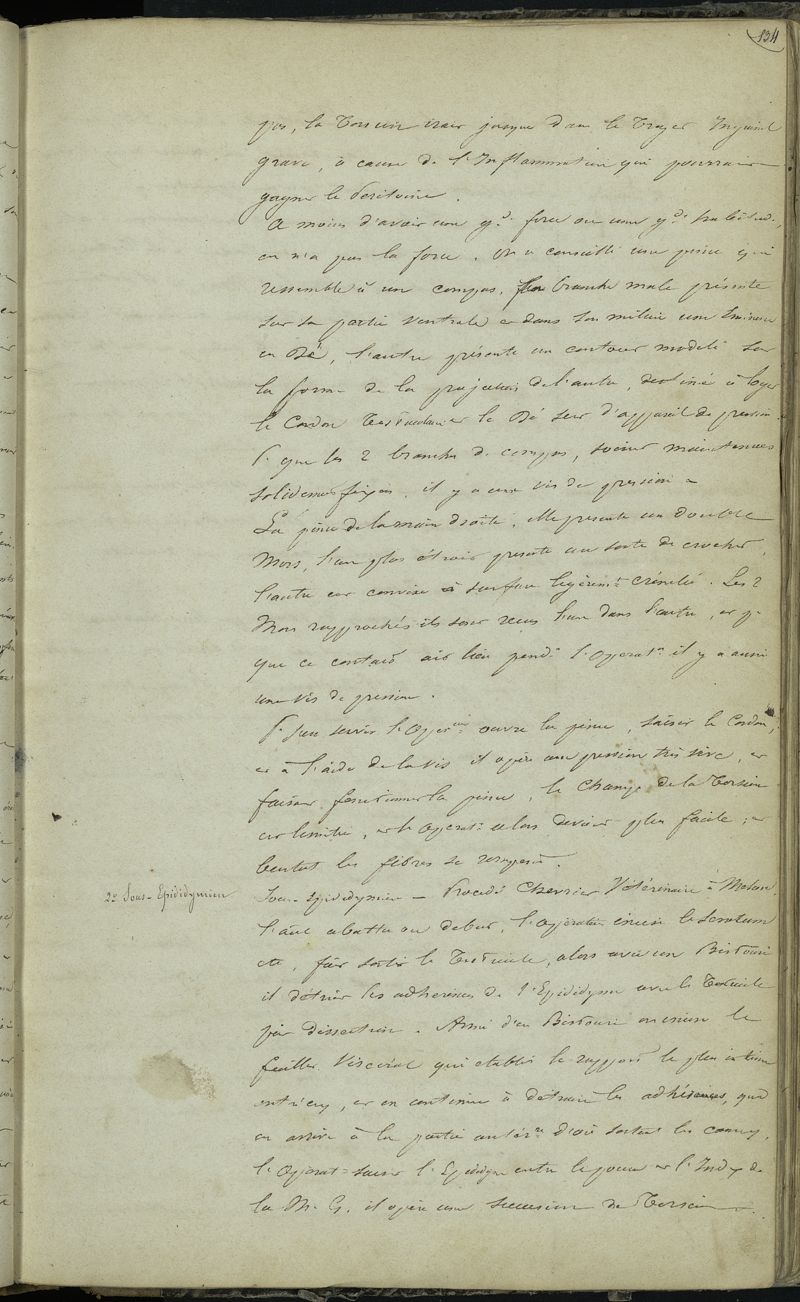 134
pas, la Torsion irait jusque dans le Trajet Inguinal
grave, à cause de l'Inflammation qui pourrait
gagner le Péritoine.
A moins d'avoir une gde force ou une gde habitude,
on n'a pas la force. On a conseillé une pince qui
ressemble à un compas, branche male présente
sur sa partie Ventrale et dans son milieu une Eminence
en Dé, l'autre présente un contour modelé sur
la forme de la projection de l'autre, destiné à loger
le Cordon Testiculaire et le Dé sert d'appareil de pression.
Pr que les 2 branches de compas, soient maintenues
solidement fixées, il y a une vis de pression
La pince de la main droite, elle présente un double
Mors, l'un plus étroit présente une sorte de crochet,
l'autre est convexe à surface légèremt crénelée. Les 2
Mors rapprochés ils sont reçus l'un dans l'autre, et pr
que ce contact ait lieu pendt l'opératn il y a aussi
une vis de pression.
Pr s'en servir l'Opérateur ouvre la pince, saisit le Cordon,
et à l'aide de la vis il opère une pression très sèche, et
faisant fonctionner la pince, le champ de la Torsion
est limité, et l'Opératn alors devient plus facile, et
bientot les fibres se rompent.
2o Sous-Epididymien
Sous-Epididymien — Procédé Chevrier Vétérinaire à Melun.
L'ane abattu ou debout, l'opérateur incise le scrotum
etc, fait sortir le Testicule, alors avec un Bistouri
il détruit les adhérences de l'Epididyme avec le Testicule
par dissection. Armé d'un Bistouri on incise le
feuillet Viscéral qui établit le rapport le plus intime
entr'eux, et on continue à détruire les adhérences, quand
on arrive à la partie antérre d'où sortent les canaux,
l'Opérat. saisit l'Epididyme entre le pouce et l'Index de
la M. G. il opère une succession de Torsion